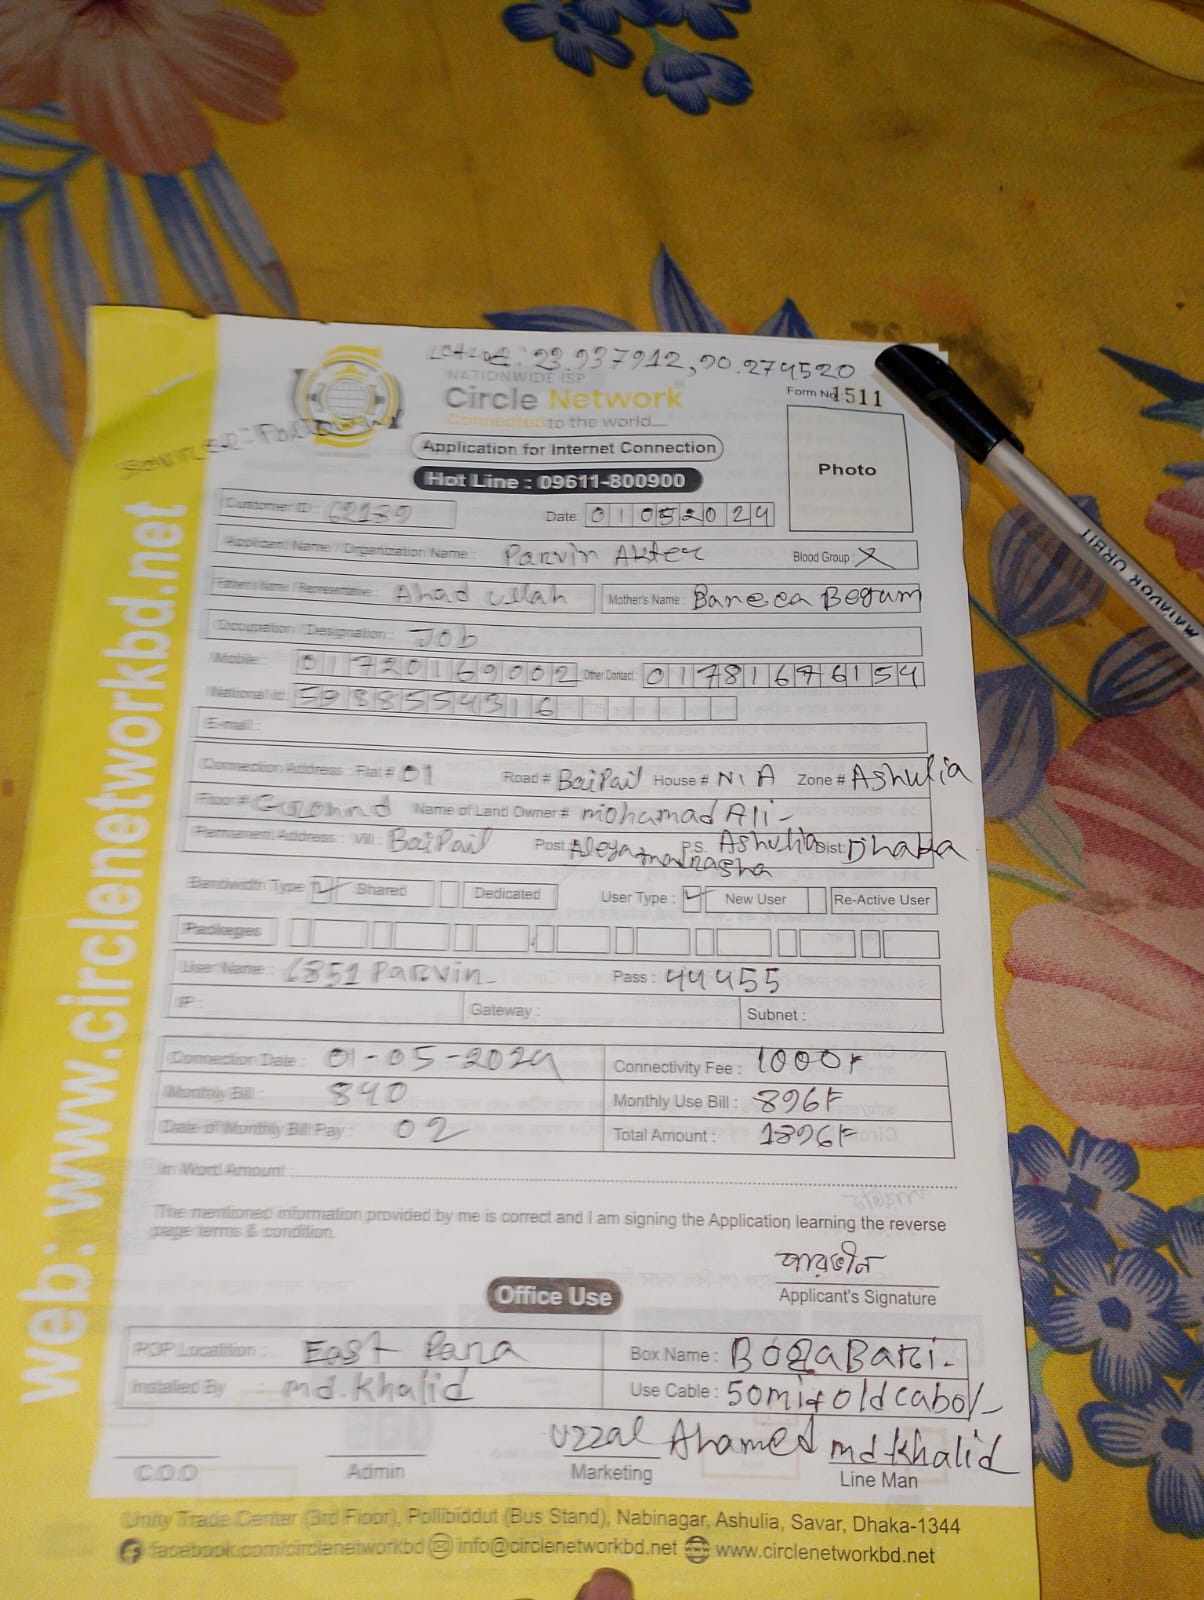 23.937912,90.274520
NATIONWIDE ISP
Circle Network
Connected to the world....
Form No 1511
Application for Internet Connection
Hot Line : 09611-800900
Photo
Customer ID : 62139
Date: 01052024
Applicant Name / Organization Name : Parvin Akter Blood Group : X
Father's Name / Representative : Ahad Ullah Mother's Name : Begum
Occupation / Designation : Job
Mobile : 01720169002 Other Contact : 01781676154
National Id : 5988554316
E-mail :
Connection Address : Flat # 01 Road # BaiPail House # N/A Zone # Ashulia
Floor # Ground Name of Land Owner # mohamad Ali-
Permanent Address : Vill : BaiPail Post: P.S. Ashulia Dist: Dhaka
Bandwidth Type Shared Dedicated User Type : New User Re-Active User
Packeges
User Name : 6851 Parvin Pass : 44455
IP : Gateway : Subnet :
Connection Date : 01-05-2024 Connectivity Fee : 1000
Monthly Bill : 840 Monthly Use Bill : 896
Date of Monthly Bill Pay : 02 Total Amount : 1896
In Word Amount
The mentioned information provided by me is correct and I am signing the Application learning the reverse
page terms & condition.
পারভীন
Applicant's Signature
Office Use
POP Location : East Para Box Name : BogaBari-
Installed By : md.Khalid Use Cable : 50mit old
Uzzal Ahamed md.Khalid
C.O.O Admin Marketing Line Man
Unity Trade Center (3rd Floor), Pollibiddut (Bus Stand), Nabinagar, Ashulia, Savar, Dhaka-1344
facebook.com/circlenetworkbd info@circlenetworkbd.net www.circlenetworkbd.net
web: www.circlenetworkbd.net
MATADOR ORBIT